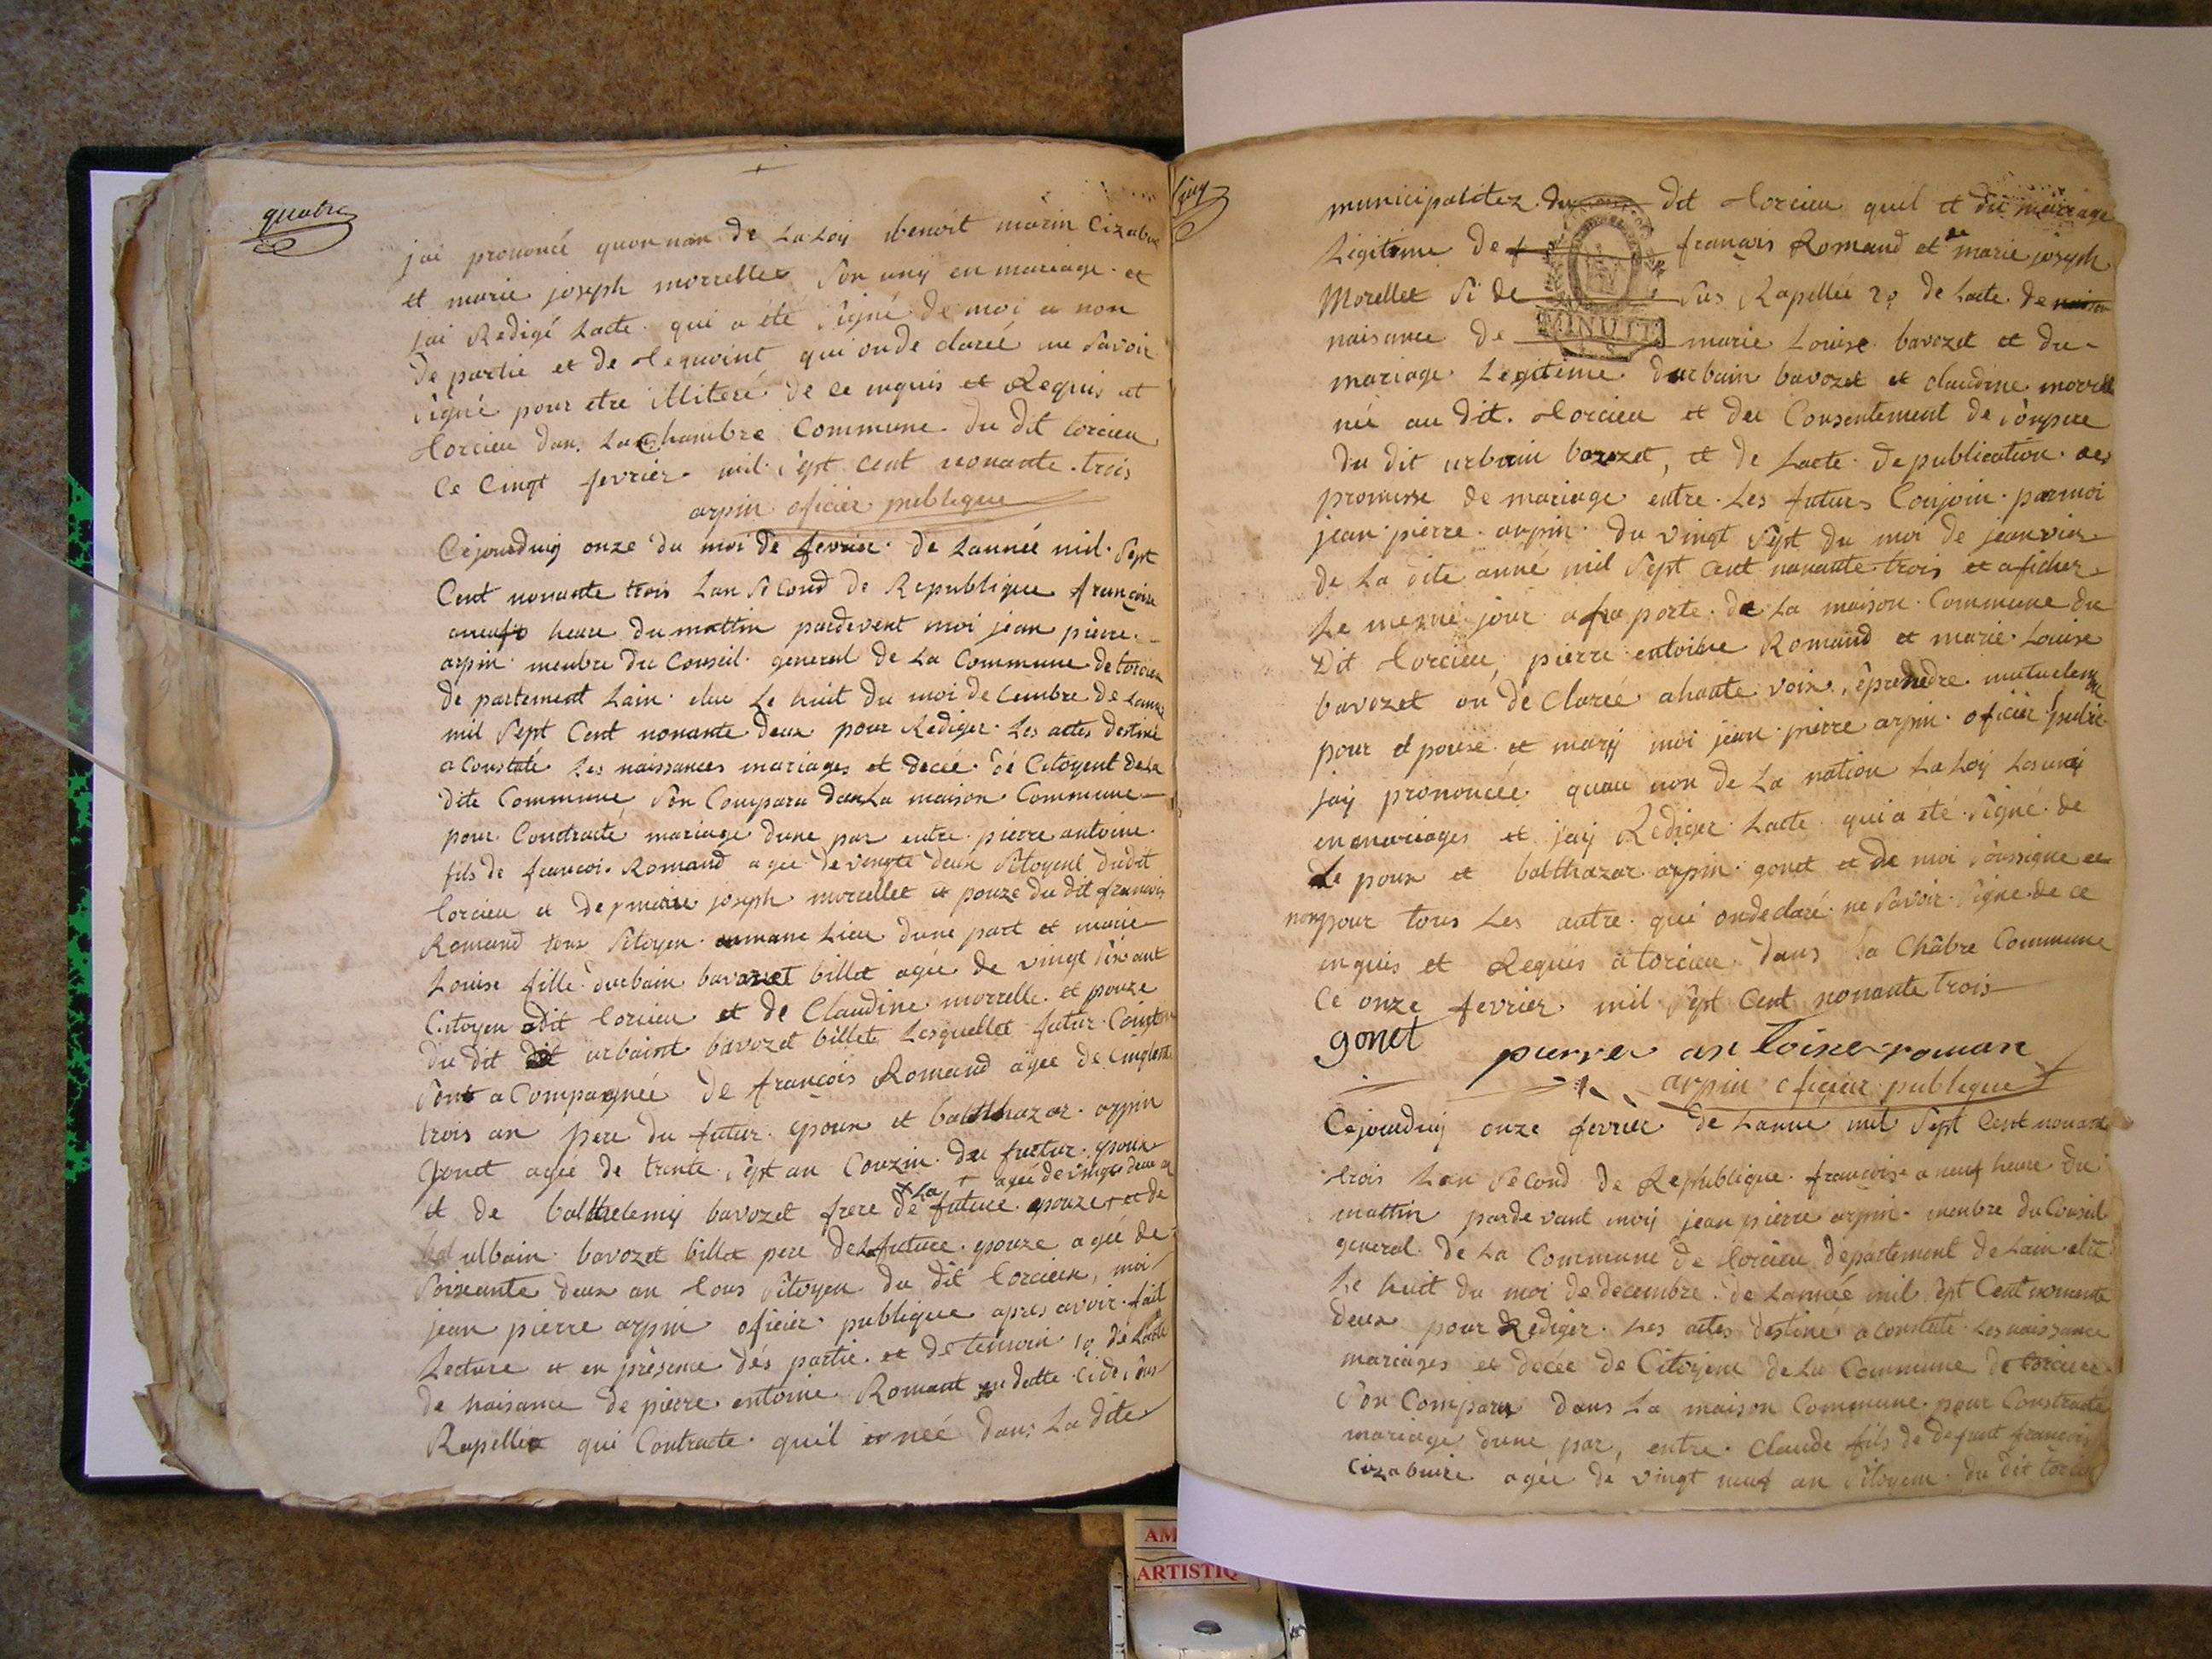 quatre
jai prononcé quon non de La Loy benoit marin Cizabuire
et marie joseph morrellet Son uny en mariage et
jai Redigé Lacte qui a été Signé de moi a non
de partie et de temoint qui onde claréé ne Savoir
Signé pour etre illiteré de ce enquis et Requis at
torcieu dan La Chambre Commune du dit torcieu
Ce Cinqt fevrier mil Sept cent nonante trois
arpin oficier publique
Cejourduy onze du moi de fevrier de Lannée mil Sept
Cent nonante trois Lan Second de Republique françoise
a neuf heure du mattin pardevent moi jean pierre
arpin menbre du Conseil general de La Commune de torcieu
de partement Lain elue Le huit du moi de Cembre de Lanné
mil Sept Cent nonante deux pour Rediger Les actes destiné
a Constaté Les naissances mariages et decée dé Citoyent de La
dite Commune Son Compara dans La maison Commune
pour Contracté mariage dune par entre pierre antoine
fils de francoi Romand agee de vingte deux Sitoyent dudit
torcieu et de marie joseph morcellet et pouze du dit francois
Romand tous Sitoyen Lieu dune part et marie
Louise fille durbain bavozet billet agée de vingt Six ant
Citoyen dit torcieu et de Claudine morrelle et pouze
du dit urbaint bavozet billet Lesquellet futur Conjoin
Sont a Compagnée de françois Romand agee de Cinqtente
trois an pere du futur epoux et balthazar arpin
gonet agée de trante Sept an Couzin du futur epoux
+ La + agée de vingt deux an
et de balthelemy bavozet frere de future epouze + et de
urbain bavozet billet pere de La future epouze agée de
Soixante deux an tous Sitoyen du dit torcieu, moi
jean pierre arpin oficier publique apres avoir fait
Lecture et en présence dés partie et de temoin 10 de Lacte
de naisance de pierre entoine Romant en datte Cide Sus
Rapellée qui Contracte quil et née dans La dite
Cinq
municipalitez du dit torcieu quil et du mariage
Ligitime de françois Romand et de marie joseph
Morellet Si de Sus Rapellée 20 de Lacte de
naisance de marie Louise bavozet et du
mariage Legitime durbain bavozet et claudine morrell
née au dit torcieu et du Consentement de Son pere
du dit urbain bavozet, et de Lacte de publication des
promesse de mariage entre Les futurs Conjoin par moi
jean pierre arpin du vingt Sept du moi de jeanvier
de La dite anné mil Sept cent nonante trois et aficher
Le meme jour a La porte de La maison Commune du
Dit torcieu, pierre entoine Romand et marie Louise
bavozet on de Clarée a haute voix Seprendre mutuelement
pour epouse et mary moi jean pierre arpin oficier public
jay prononcée quau non de La nation La Loy Les uny
en mariages et jay Rediger Lacte qui a été Signé de
Le poux et balthazar arpin gonet et de moi Soussigne et
non pour tous Les autre qui ondeclaré ne Savoir Signe de ce
enquis et Requis a torcieu dans La Châbre Commune
Ce onze fevrier mil Sept Cent nonante trois
gonet pierre antoine roman
arpin oficier publique
Cejourduy onze fevrier de Lanné mil Sept Cent nonante
trois Lan Second de Republique françoise a neuf heure du
mattin pardevant moy jean pierre arpin menbre du Conseil
general de La Commune de torcieu departement de Lain elue
Le huit du moi de decembre de Lannée mil Sept Cent nonante
deux pour Rediger Les actes destiné a constaté Les naissance
mariages et decée de Citoyent de La Commune de torcieu
Son Comparu dans La maison Commune pour Contracté
mariage dune par, entre Claude fils de defunt francois
Cizabuire agée de vingt neuf an Sitoyen du dit torcieu
MINUTE
AM
ARTISTIQ